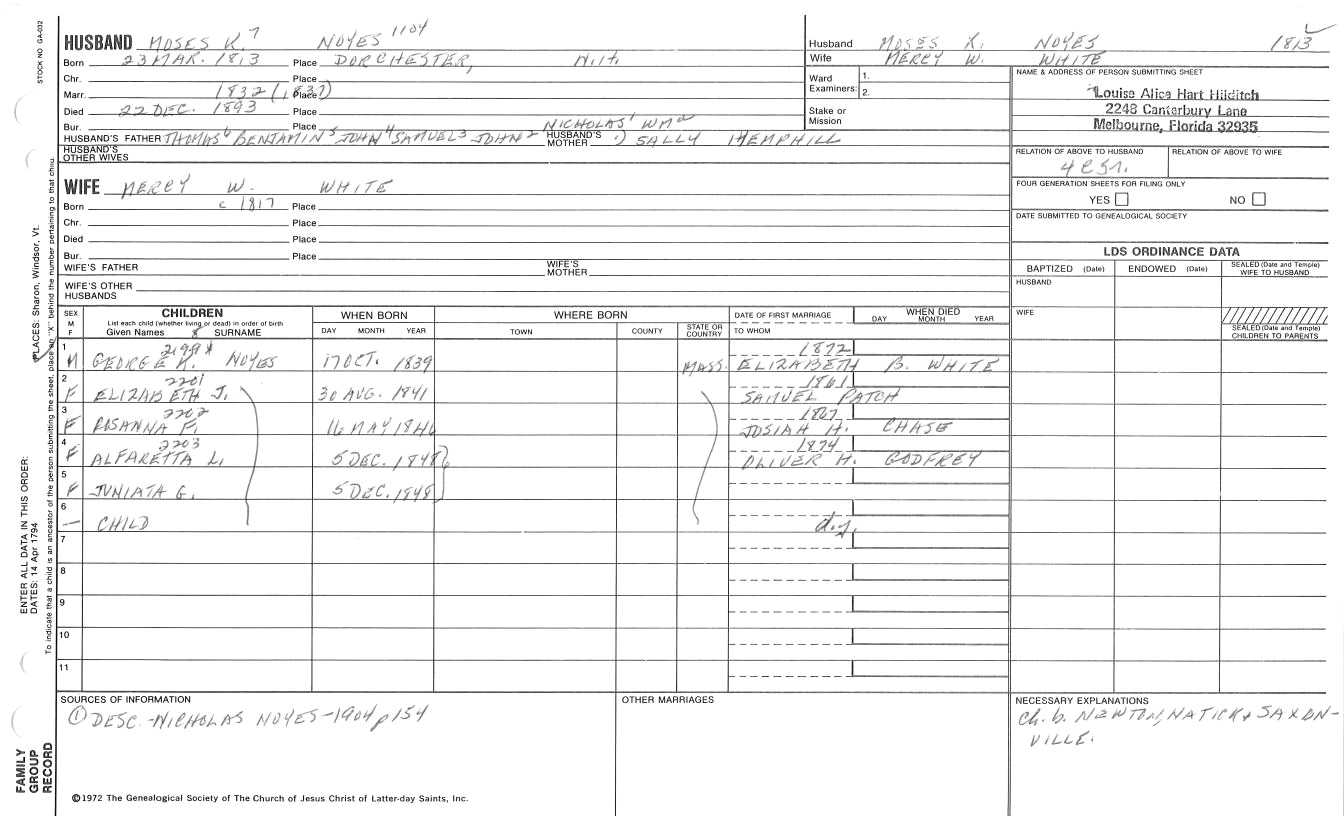 STOCK NO GA-032
HUSBAND MOSES K.7 NOYES 1104
Born 23 MAR. 1813 Place DORCHESTER, N.H.
Chr. Place
Marr. 1832 (1837) Place
Died 22 DEC. 1893 Place
Bur. Place NICHOLAS1 WM2
HUSBAND'S FATHER THOMAS6 BENJAMIN5 JOHN4 SAMUEL3 JOHN2 HUSBAND'S MOTHER SALLY HEMPHILL
HUSBAND'S OTHER WIVES
WIFE MERCY W. WHITE
Born c 1817 Place
Chr. Place
Died Place
Bur. Place
WIFE'S FATHER WIFE'S MOTHER
WIFE'S OTHER HUSBANDS
Husband MOSES K. NOYES 1813
Wife MERCY W. WHITE
Ward Examiners: 1. 2.
Stake or Mission
NAME & ADDRESS OF PERSON SUBMITTING SHEET
Louise Alice Hart Hilditch
2248 Canterbury Lane
Melbourne, Florida 32935
RELATION OF ABOVE TO HUSBAND RELATION OF ABOVE TO WIFE
FOUR GENERATION SHEETS FOR FILING ONLY
YES NO
DATE SUBMITTED TO GENEALOGICAL SOCIETY
LDS ORDINANCE DATA
BAPTIZED (Date) ENDOWED (Date) SEALED (Date and Temple) WIFE TO HUSBAND
HUSBAND
WIFE
SEALED (Date and Temple) CHILDREN TO PARENTS
SEX M F CHILDREN WHEN BORN WHERE BORN DATE OF FIRST MARRIAGE WHEN DIED
List each child (whether living or dead) in order of birth
Given Names SURNAME DAY MONTH YEAR TOWN COUNTY STATE OR COUNTRY TO WHOM DAY MONTH YEAR
1 2199 1872
M GEORGE K. NOYES 17 OCT. 1839 MASS. ELIZABETH B. WHITE
2 2201 1861
F ELIZABETH J. 30 AUG. 1841 SAMUEL PATCH
3 2202 1867
F ROSANNA F. 16 MAY 1846 JOSIAH H. CHASE
4 2203 1874
F ALFARETTA L. 5 DEC. 1848 OLIVER H. GODFREY
5
F JUNIATA G. 5 DEC. 1848
6
— CHILD d.y.
7
8
9
10
11
SOURCES OF INFORMATION
① DESC.-NICHOLAS NOYES-1904 p154
OTHER MARRIAGES
NECESSARY EXPLANATIONS
Ch. b. NEWTON, NATICK & SAXON-
VILLE.
©1972 The Genealogical Society of The Church of Jesus Christ of Latter-day Saints, Inc.
FAMILY GROUP RECORD
ENTER ALL DATA IN THIS ORDER:
DATES: 14 Apr 1794
PLACES: Sharon, Windsor, Vt.
To indicate that a child is an ancestor of the person submitting the sheet, place an "X" behind the number pertaining to that child.